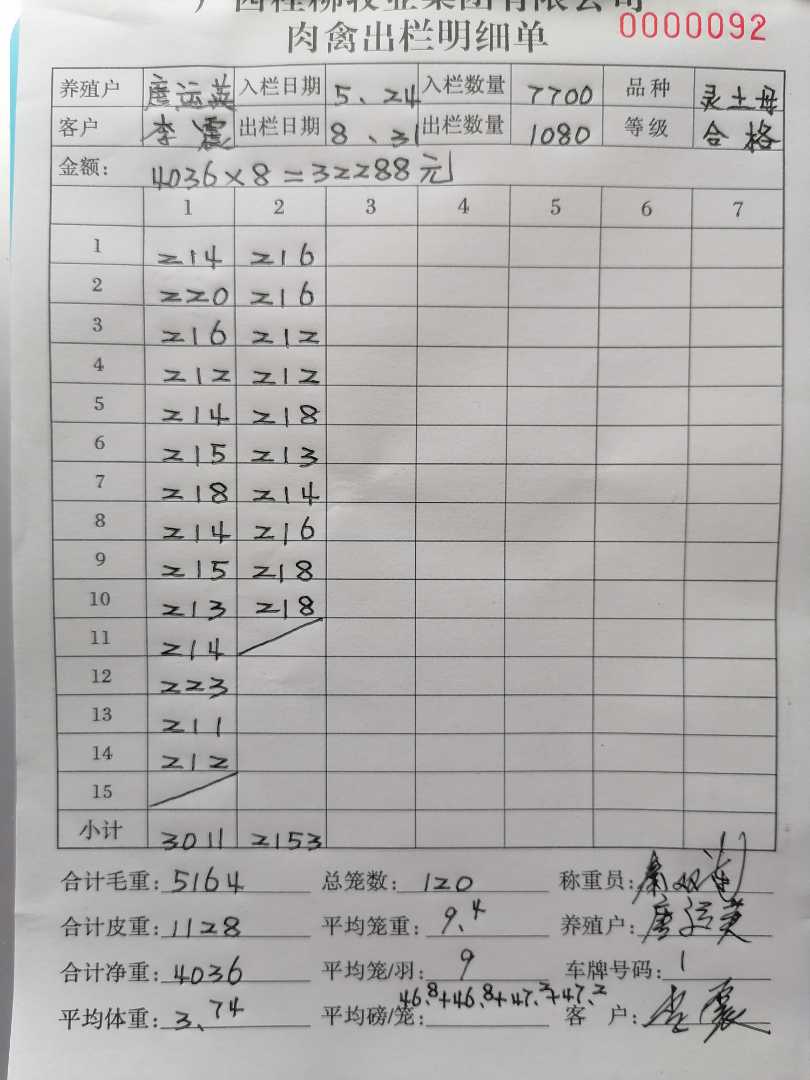 广西桂柳牧业集团有限公司
肉禽出栏明细单 0000092
养殖户 唐运英 入栏日期 5、24 入栏数量 7700 品种 灵土母
客户 李震 出栏日期 8、31 出栏数量 1080 等级 合格
金额: 4036×8=32288元
1 2 3 4 5 6 7
1 214 216
2 220 216
3 216 212
4 212 212
5 214 218
6 215 213
7 218 214
8 214 216
9 215 218
10 213 218
11 214
12 223
13 211
14 212
15
小计 3011 2153
合计毛重: 5164 总笼数: 120 称重员:
合计皮重: 1128 平均笼重: 9.4 养殖户: 唐运英
合计净重: 4036 平均笼/羽: 9 车牌号码: 1
平均体重: 3、74 平均磅/笼: 46.8+46.8+47.2+47.2 客户: 李震